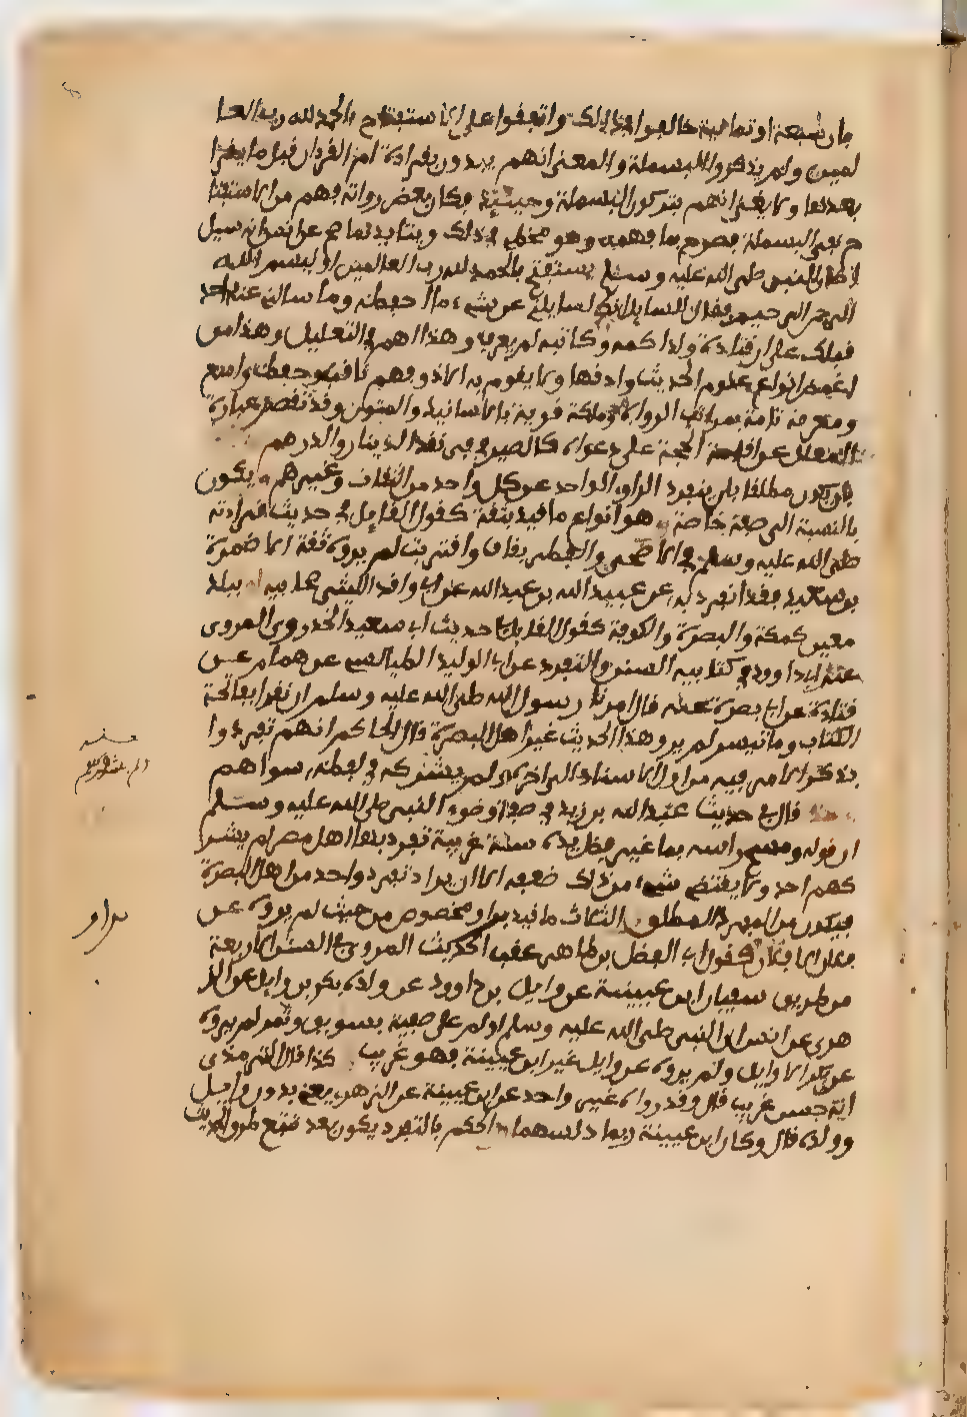 فان سبعة او ثمانية خالفوا في ذلك واتفقوا على الاستفتاح بالحمد لله رب العا
لمين ولم يذكروا البسملة والمعنى انهم يبدءون بقراءة ام القرءان قبل ما يقرا
بعدها ولا يعنى انهم يتركون البسملة وحينئذ فكان بعض رواته فهم من الاستفتا
ح نفي البسملة فصرح بما فهمه وهو مخطئ في ذلك ويتايد بما صح عن انس انه سيل
اكان النبي صلى الله عليه وسلم يستفتح بالحمد لله رب العالمين او ببسم الله
الرحمن الرحيم فقال للسايل انك لتسالني عن شيء ما احفظه وما سالني عنه احد
قبلك على ان قتادة ولد اكمه وكاتبه لم يعرف وهذا اهم في التعليل وهذا من
اغمض انواع علوم الحديث وادقها ولا يقوم به الا ذو فهم ثاقب وحفظ واسع
ومعرفة تامة بمراتب الرواة وملكة قوية بالاسانيد والمتون وقد تقصر عبارة
المعلل عن اقامة الحجة على دعواه كالصيرفي في نقد الدينار والدرهم
يكون مطلقا بان ينفرد الراوي الواحد عن كل واحد من الثقات وغيرهم ويكون
بالنسبة الى صفة خاصة وهو انواع ما قيد بثقة كقول القايل في حديث قراءته
صلى الله عليه وسلم في الاضحى والفطر بقاف واقتربت لم يروه ثقة الا ضمرة
بن سعيد فقد انفرد به عن عبيد الله بن عبد الله عن ابي واقد الليثي صحابيه او ببلد
معين كمكة والبصرة والكوفة كقول القايل في حديث ابي سعيد الخدري المروي
عند ابي داوود في كتابيه السنن والتفرد عن ابي الوليد الطيالسي عن همام عن
قتادة عن ابي نضرة عنه قال امرنا رسول الله صلى الله عليه وسلم ان نقرا بفاتحة
الكتاب وما تيسر لم يرو هذا الحديث غير اهل البصرة قال الحاكم انهم تفردوا
بذكر الامر فيه من اول الاسناد الى اخره ولم يشركهم في لفظه سواهم
قال في حديث عبد الله بن زيد في صفة وضوء النبي صلى الله عليه وسلم
ان قوله ومسح راسه بماء غير فضل يده سنة غريبة تفرد بها اهل مصر لم يشر
كهم احد ولا يقتضي شيء من ذلك ضعفه الا ان يراد تفرد واحد من اهل البصرة
فيكون من الفرد المطلق الثالث ما قيد براو مخصوص من حيث لم يروه عن
فلان الا فلان كقول ابي الفضل بن طاهر عقب الحديث المروي في السنن الاربعة
من طريق سفيان ابن عيينة عن وايل بن داوود عن ولده بكر بن وايل عن الز
هري عن انس ان النبي صلى الله عليه وسلم اولم على صفية بسويق وتمر لم يروه
عن بكر الا وايل ولم يروه عن وايل غير ابن عيينة فهو غريب كذا قال الترمذي
انه حسن غريب قال وقد رواه غير واحد عن ابن عيينة عن الزهري يعني بدون وايل
وولده قال وكان ابن عيينة ربما دلسهما والحكم بالتفرد يكون بعد تتبع طرق الحديث
براو